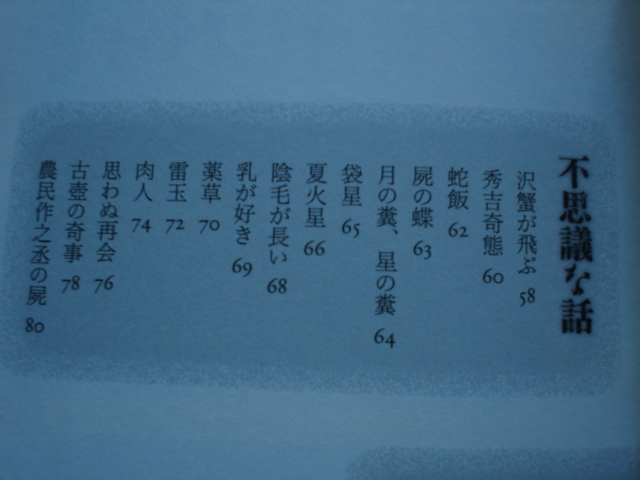 不思議な話
沢蟹が飛ぶ 58
秀吉奇態 60
蛇飯 62
屍の蝶 63
月の糞、星の糞 64
袋星 65
夏火星 66
陰毛が長い 68
乳が好き 69
薬草 70
雷玉 72
肉人 74
思わぬ再会 76
古壺の奇事 78
農民作之丞の屍 80